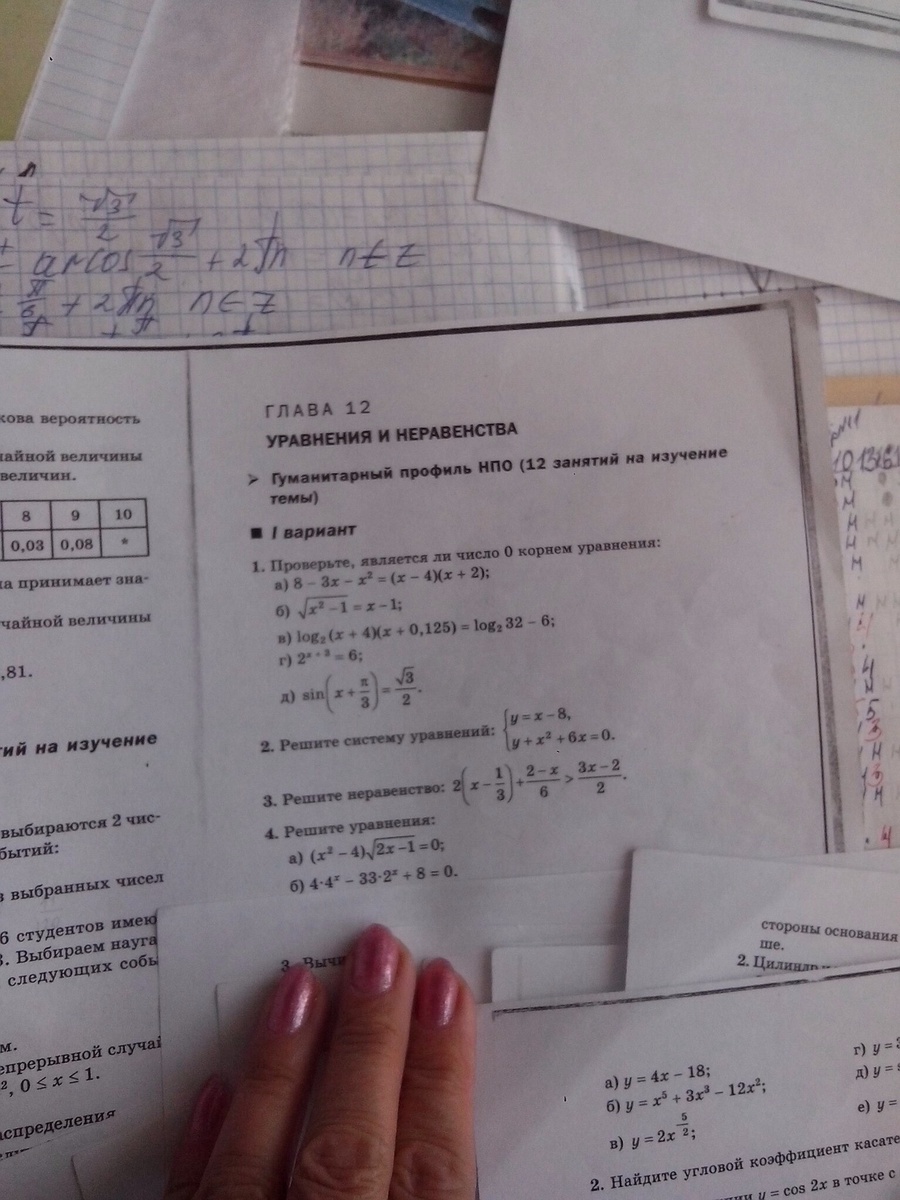 t = √3/2
arcos √3/2 + 2πn n ∈ Z
π/6 + 2πn n ∈ Z
кова вероятность
чайной величины
величин.
8 9 10
0,03 0,08 *
на принимает зна-
чайной величины
,81.
тий на изучение
выбираются 2 чис-
бытий:
з выбранных чисел
6 студентов имею
3. Выбираем науга
следующих собы
м.
епрерывной случай
², 0 ≤ x ≤ 1.
аспределения
ГЛАВА 12
УРАВНЕНИЯ И НЕРАВЕНСТВА
➢ Гуманитарный профиль НПО (12 занятий на изучение
темы)
■ I вариант
1. Проверьте, является ли число 0 корнем уравнения:
а) 8 – 3x – x² = (x – 4)(x + 2);
б) √(x² – 1) = x – 1;
в) log₂ (x + 4)(x + 0,125) = log₂ 32 – 6;
г) 2ˣ⁺³ = 6;
д) sin(x + π/3) = √3/2.
2. Решите систему уравнений: { y = x – 8,
y + x² + 6x = 0.
3. Решите неравенство: 2(x – 1/3) + (2 – x)/6 > (3x – 2)/2.
4. Решите уравнения:
а) (x² – 4)√(2x – 1) = 0;
б) 4·4ˣ – 33·2ˣ + 8 = 0.
3. Вычи
стороны основания
ше.
2. Цилиндр
а) y = 4x – 18;
б) y = x⁵ + 3x³ – 12x²;
в) y = 2x^(5/2);
г) y = 3
д) y =
е) y =
2. Найдите угловой коэффициент касате
y = cos 2x в точке с